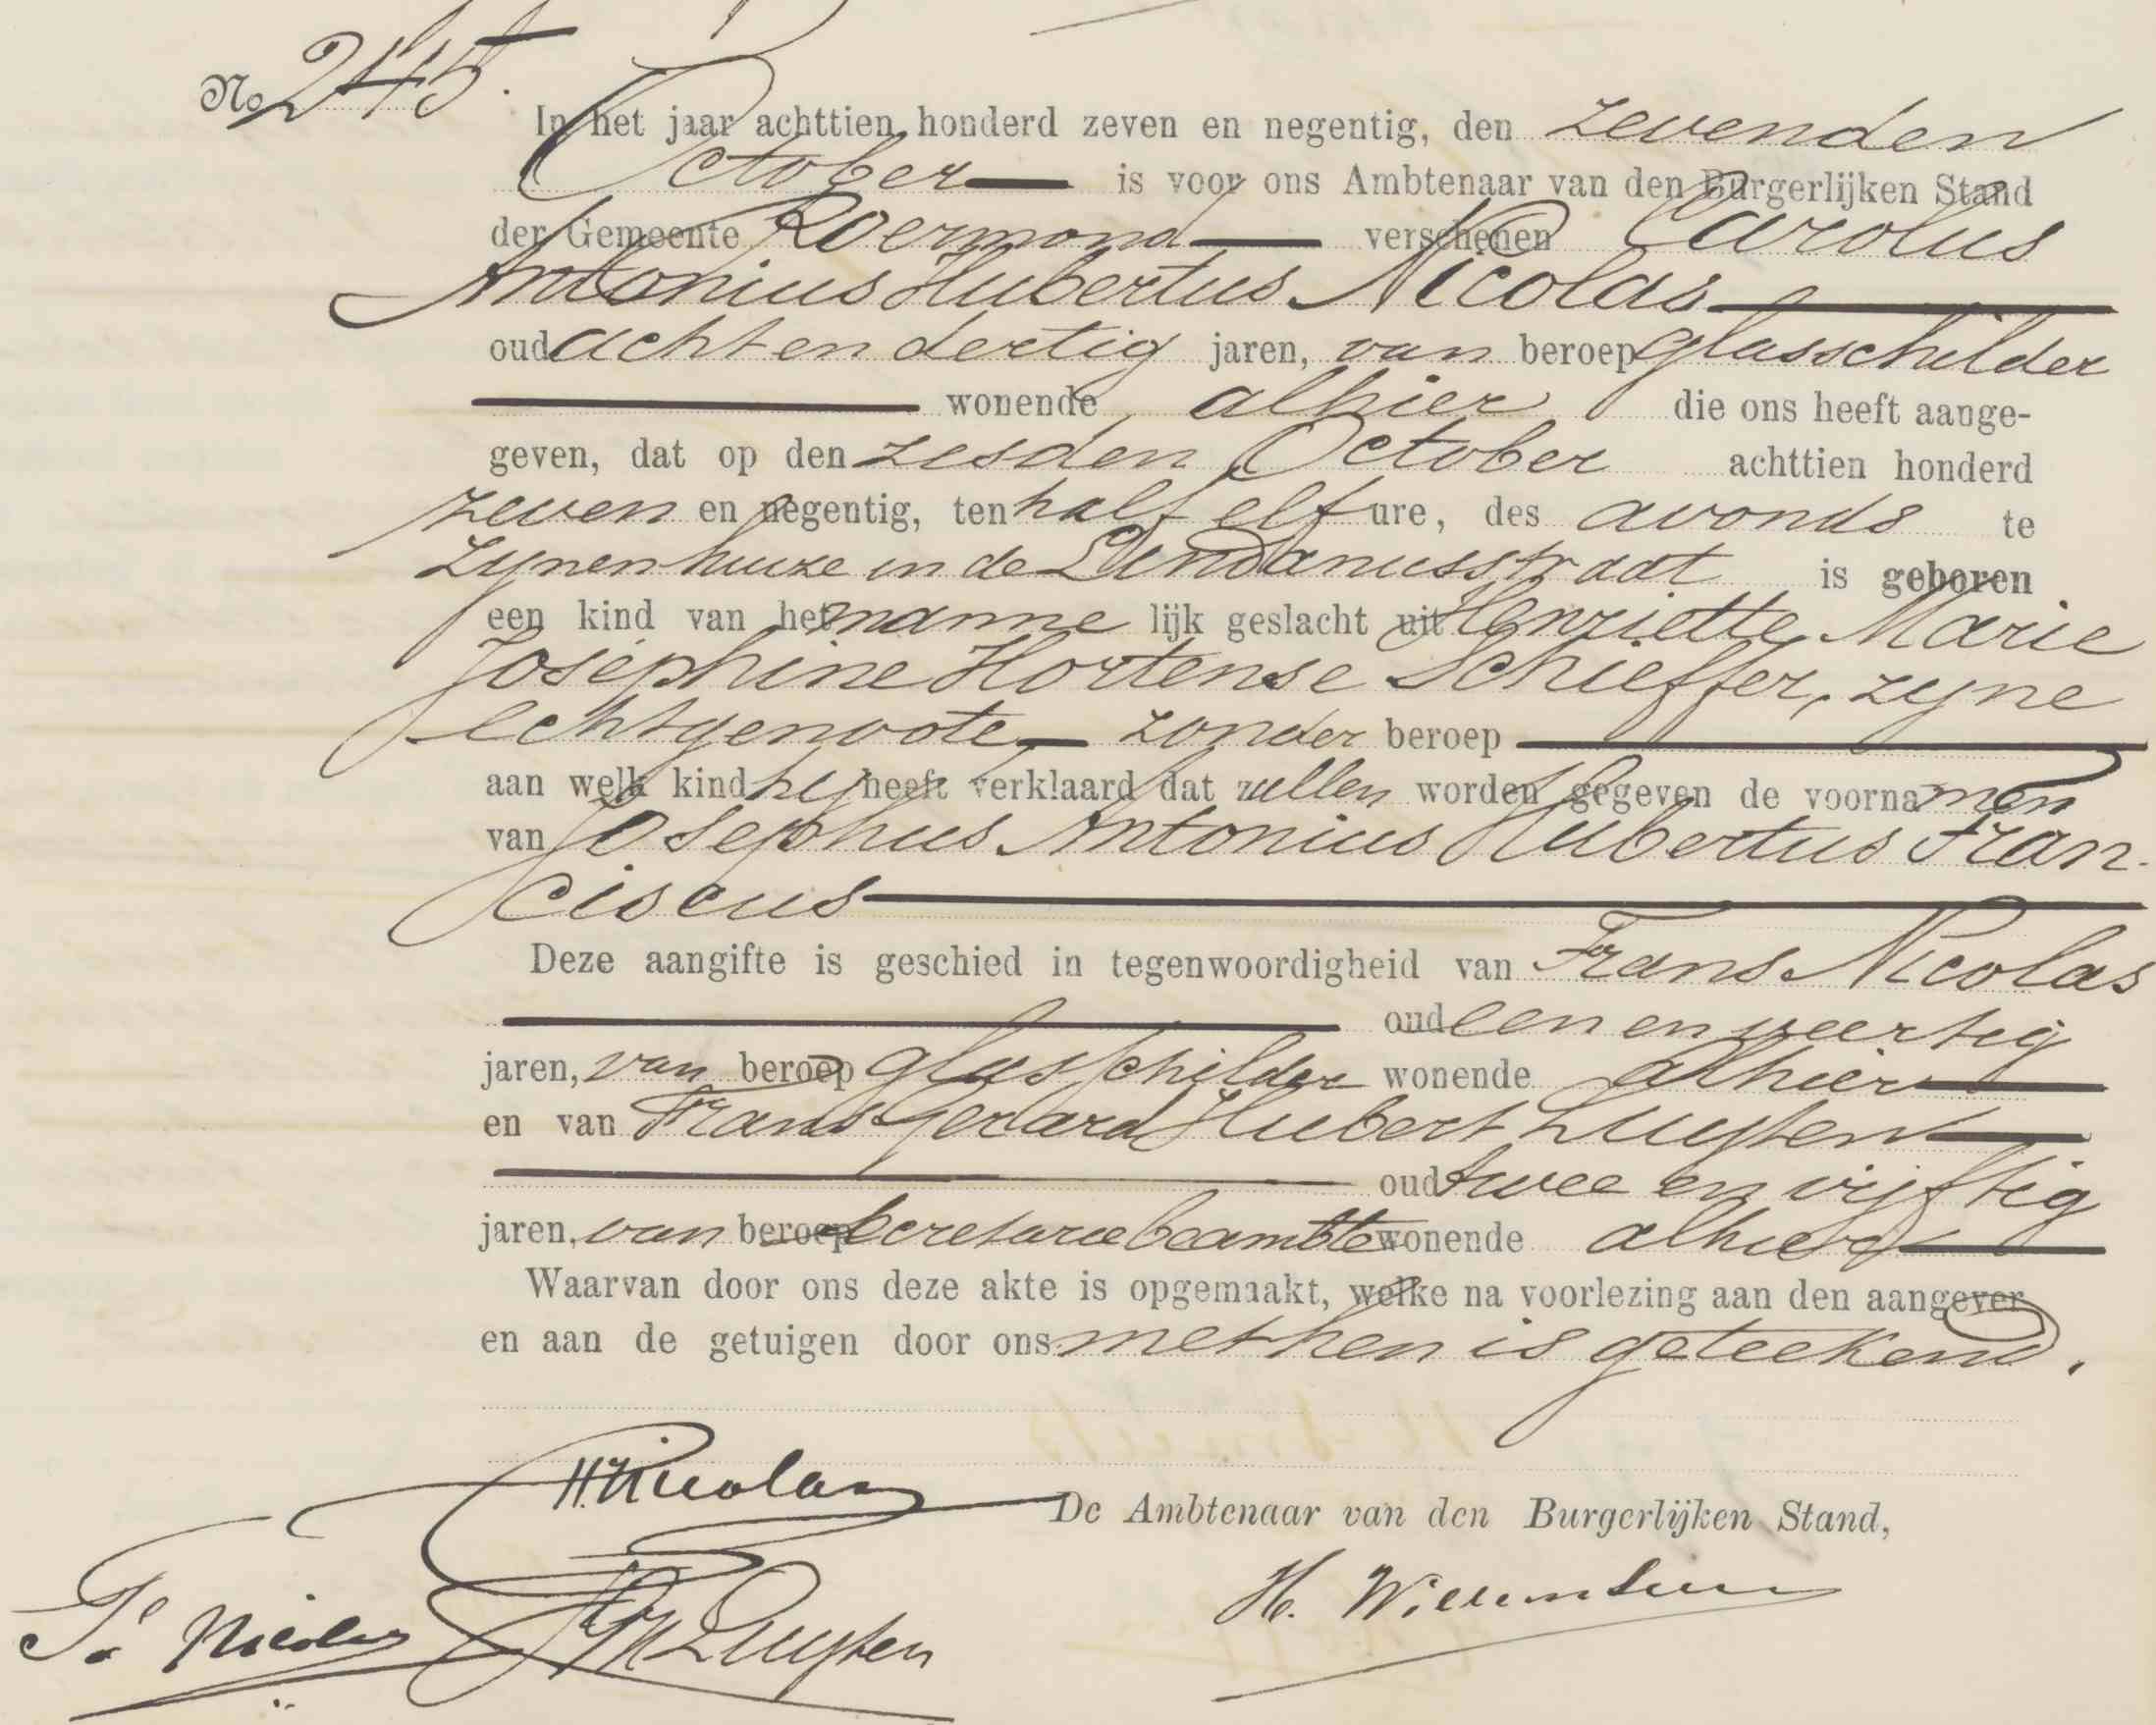 No 245.
In het jaar achttien honderd zeven en negentig, den zevenden
October is voor ons Ambtenaar van den Burgerlijken Stand
der Gemeente Roermond verschenen Carolus
Antonius Hubertus Nicolas
oud acht en dertig jaren, van beroep glasschilder
wonende alhier die ons heeft aange-
geven, dat op den zesden October achttien honderd
zeven en negentig, ten half elf ure, des avonds te
zijnen huize in de Lindanusstraat is geboren
een kind van het manne lijk geslacht uit Henriette Marie
Joséphine Hortense Schieffer, zijne
echtgenoote zonder beroep
aan welk kind hij heeft verklaard dat zullen worden gegeven de voornamen
van Josephus Antonius Hubertus Fran-
ciscus
Deze aangifte is geschied in tegenwoordigheid van Frans Nicolas
oud een en veertig
jaren, van beroep glasschilder wonende alhier
en van Frans Gerard Hubert Luyten
oud twee en vijftig
jaren, van beroep secretariebeambte wonende alhier
Waarvan door ons deze akte is opgemaakt, welke na voorlezing aan den aangever
en aan de getuigen door ons met hen is geteekend.
Nicolas
De Ambtenaar van den Burgerlijken Stand,
H.
Nicolas Luyten